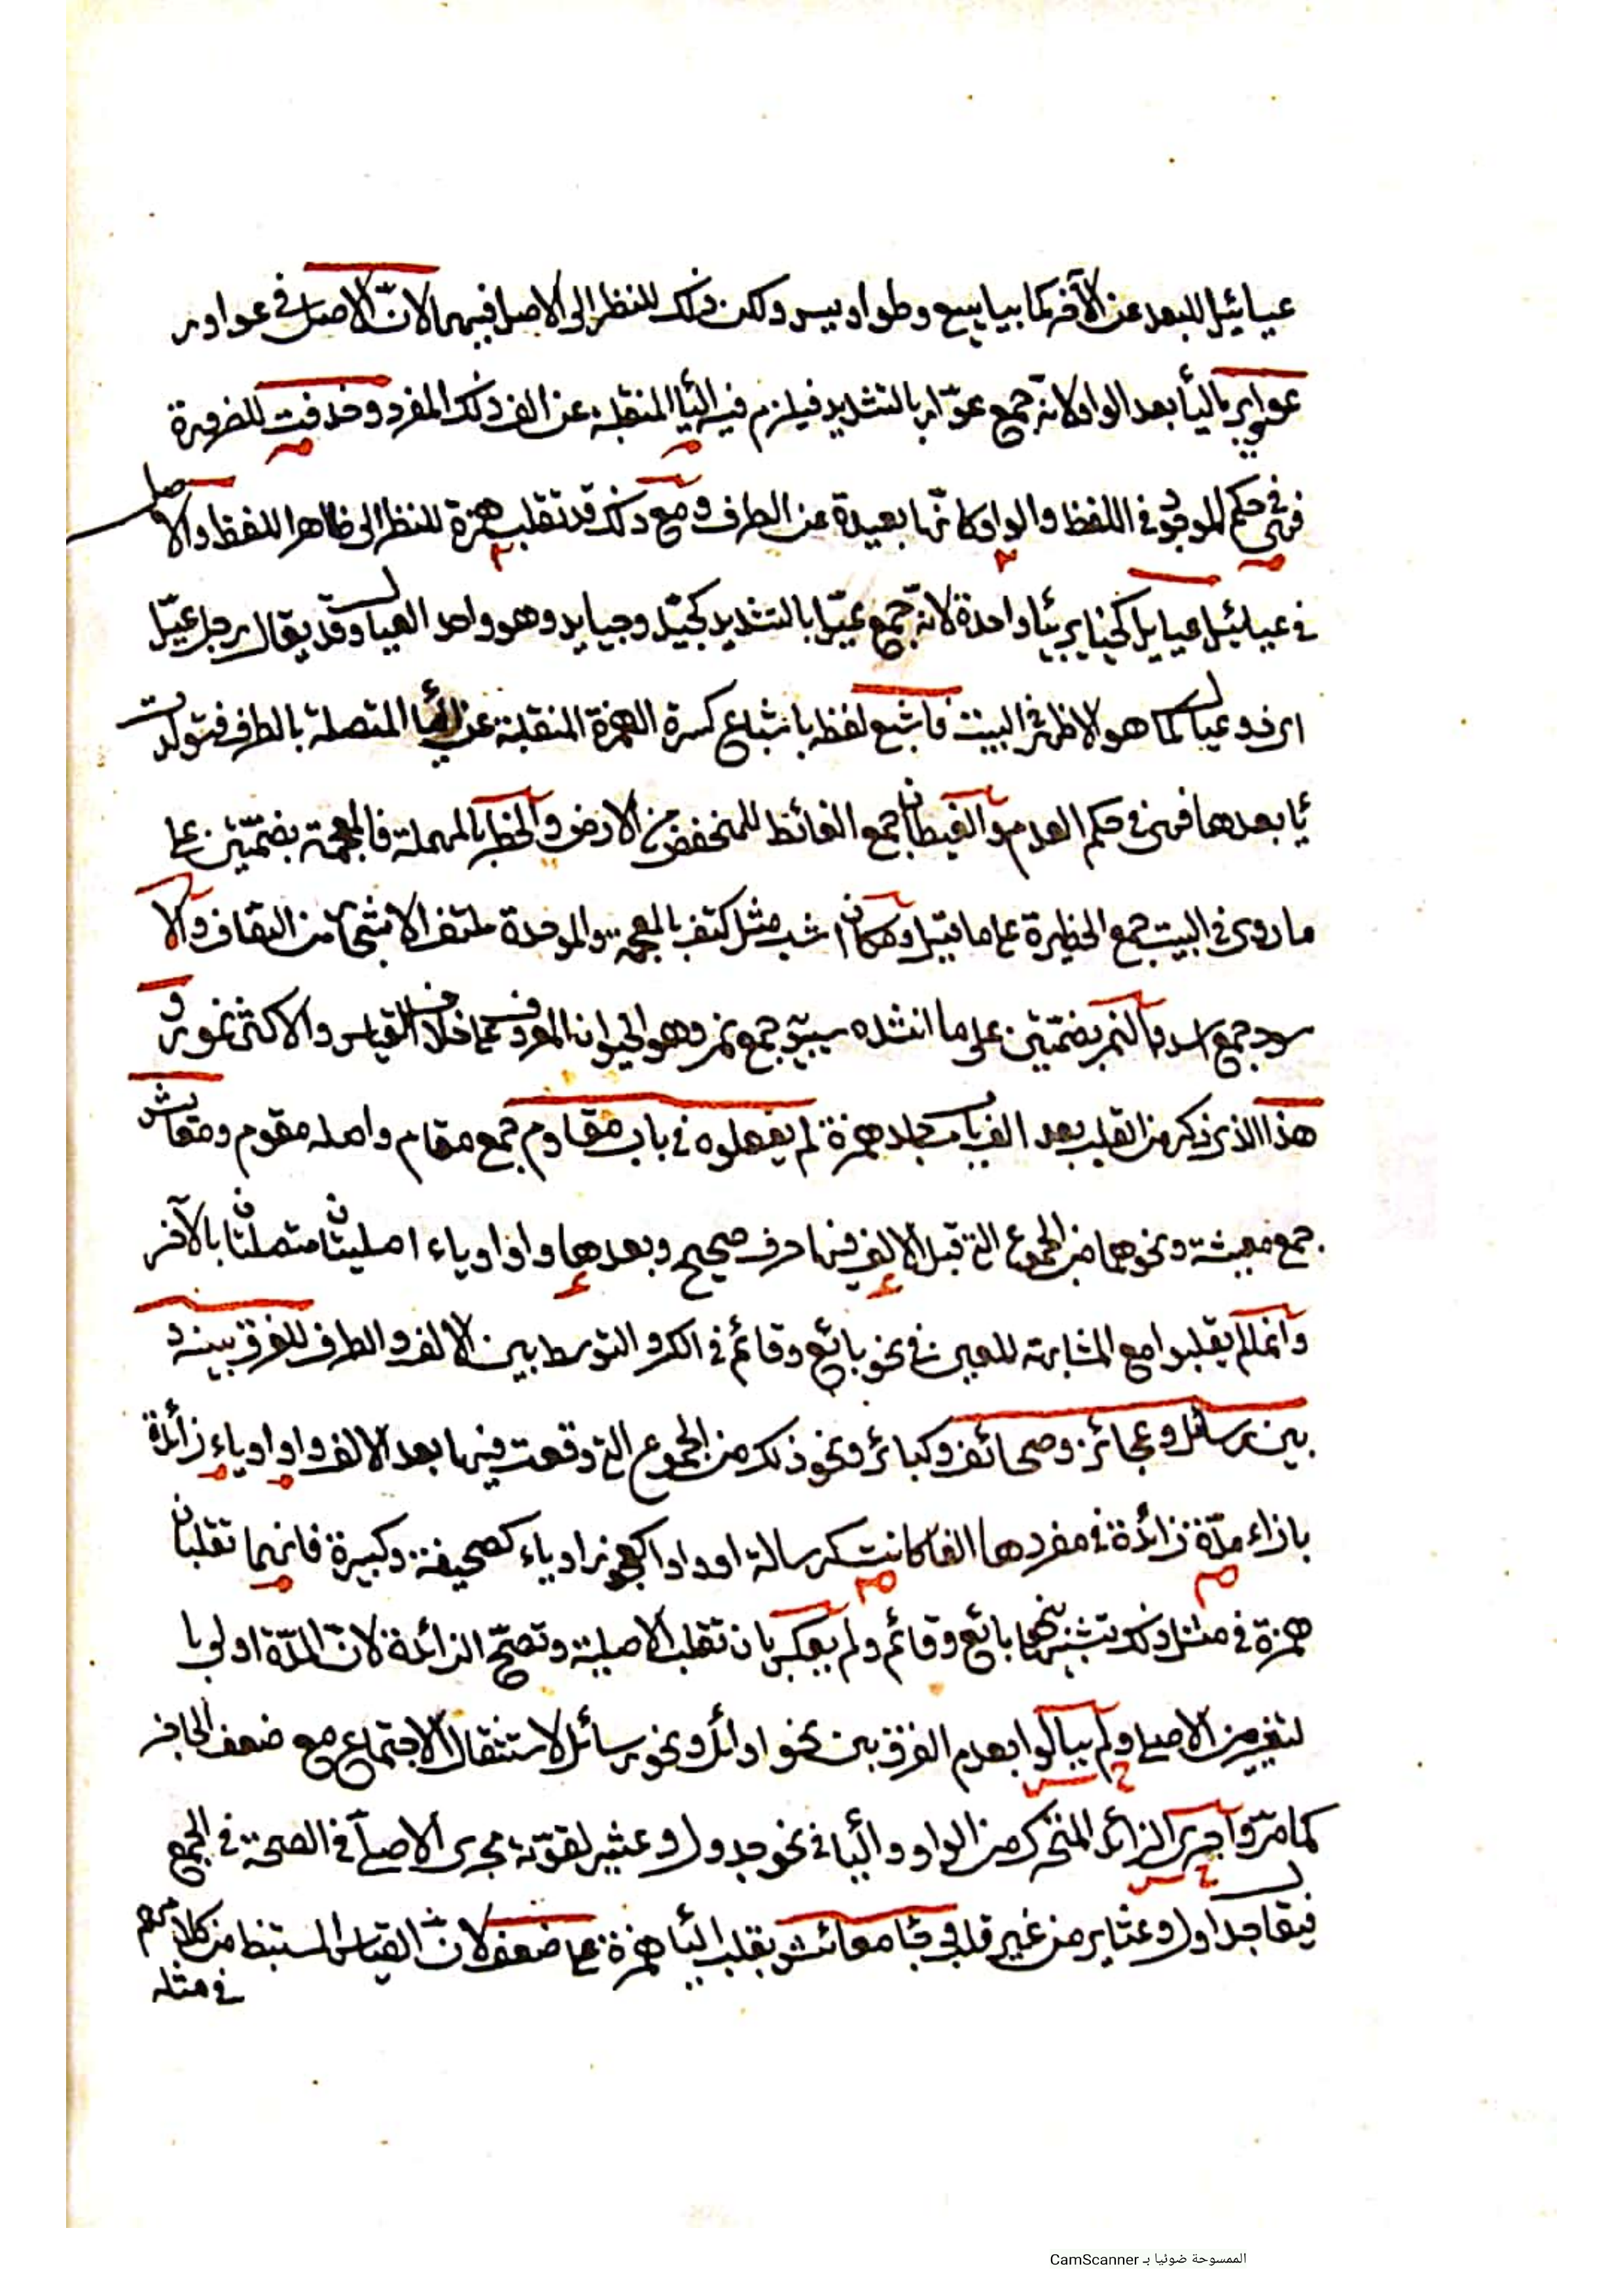 عيائيل للبعد عن الآخر كما بياييع وطواويس ولكن ذلك للنظر الى الاصل فيهما لانّ الاصل في عواور
عواوير بالياء بعد الواو لانه جمع عوّار بالتشديد فيلزم فيه الياء المنقلبة عن الف ذلك المفرد وحذفت للضرورة
فهي في حكم الموجود في اللفظ والواو كانّها بعيدة عن الطرف ومع ذلك قد تقلب همزة للنظر الى ظاهر اللفظ والاصل
في عيائيل عيايل كخياير بياء واحدة لانه جمع عيّل بالتشديد كجيّد وجيايد وهو واحد العيال وقد يقال رجل عيّل
اي ذو عيال كما هو الاظهر في البيت فاشبع لفظه باشباع كسرة الهمزة المنقلبة عن الياء المتصلة بالطرف فتولدت
ياء بعدها فهي في حكم العدم والغيطان جمع الغائط للمنخفض من الارض والحظر بالمهملة فالمعجمة بضمّتين على
ما روي في البيت جمع الحظيرة على ما قيل ومكان اشب مثل كتف بالمعجمة والموحدة ملتف الاشجار من التفاف والا
سود جمع اسد والنمر بضمّتين على ما انشده سيبويه جمع نمر وهو الحيوان المعروف على خلاف القياس والاكثر نمور و
هذا الذي ذكر من القلب بعد الف باب مساجد همزة لم يفعلوه في باب مقاوم جمع مقام واصله مقوم ومعايش
جمع معيشة ونحوهما من الجموع التي قبل الالف فيها حرف صحيح وبعدها واو او ياء اصليتان متصلتان بالآخر
وانما لم يقلبوا مع المشابهة للعين في نحو بائع وقائم في الكسر والتوسط بين الالف والطرف للفرق بينه و
بين رسائل وعجائز وصحائف وكبائر ونحو ذلك من الجموع التي وقعت فيها بعد الالف واو او ياء زائدة
بازاء مدّة زائدة في مفردها الفا كانت كرسالة او واوا كعجوز او ياء كصحيفة وكبيرة فانهما تقلبان
همزة في مثل ذلك تشبيها ببائع وقائم ولم يعكس بان تقلب الاصلية وتصحّ الزائدة لانّ المدّة اولى با
لتغيير من الاصلي ولم يبالوا بعدم الفرق بين نحو اوائل ونحو رسائل لاستثقال الاجتماع مع ضعف الحاجز
كما مرّ واجري الزائد المتحرك من الواو والياء في نحو جدول وعثير لقوّته مجرى الاصليّ في الصحة في الجمع
فيقال جداول وعثاير من غير قلب وجاء معائش بقلب الياء همزة على ضعف لانّ القياس المستنبط من كلامهم
في مثله
الممسوحة ضوئيا بـ CamScanner